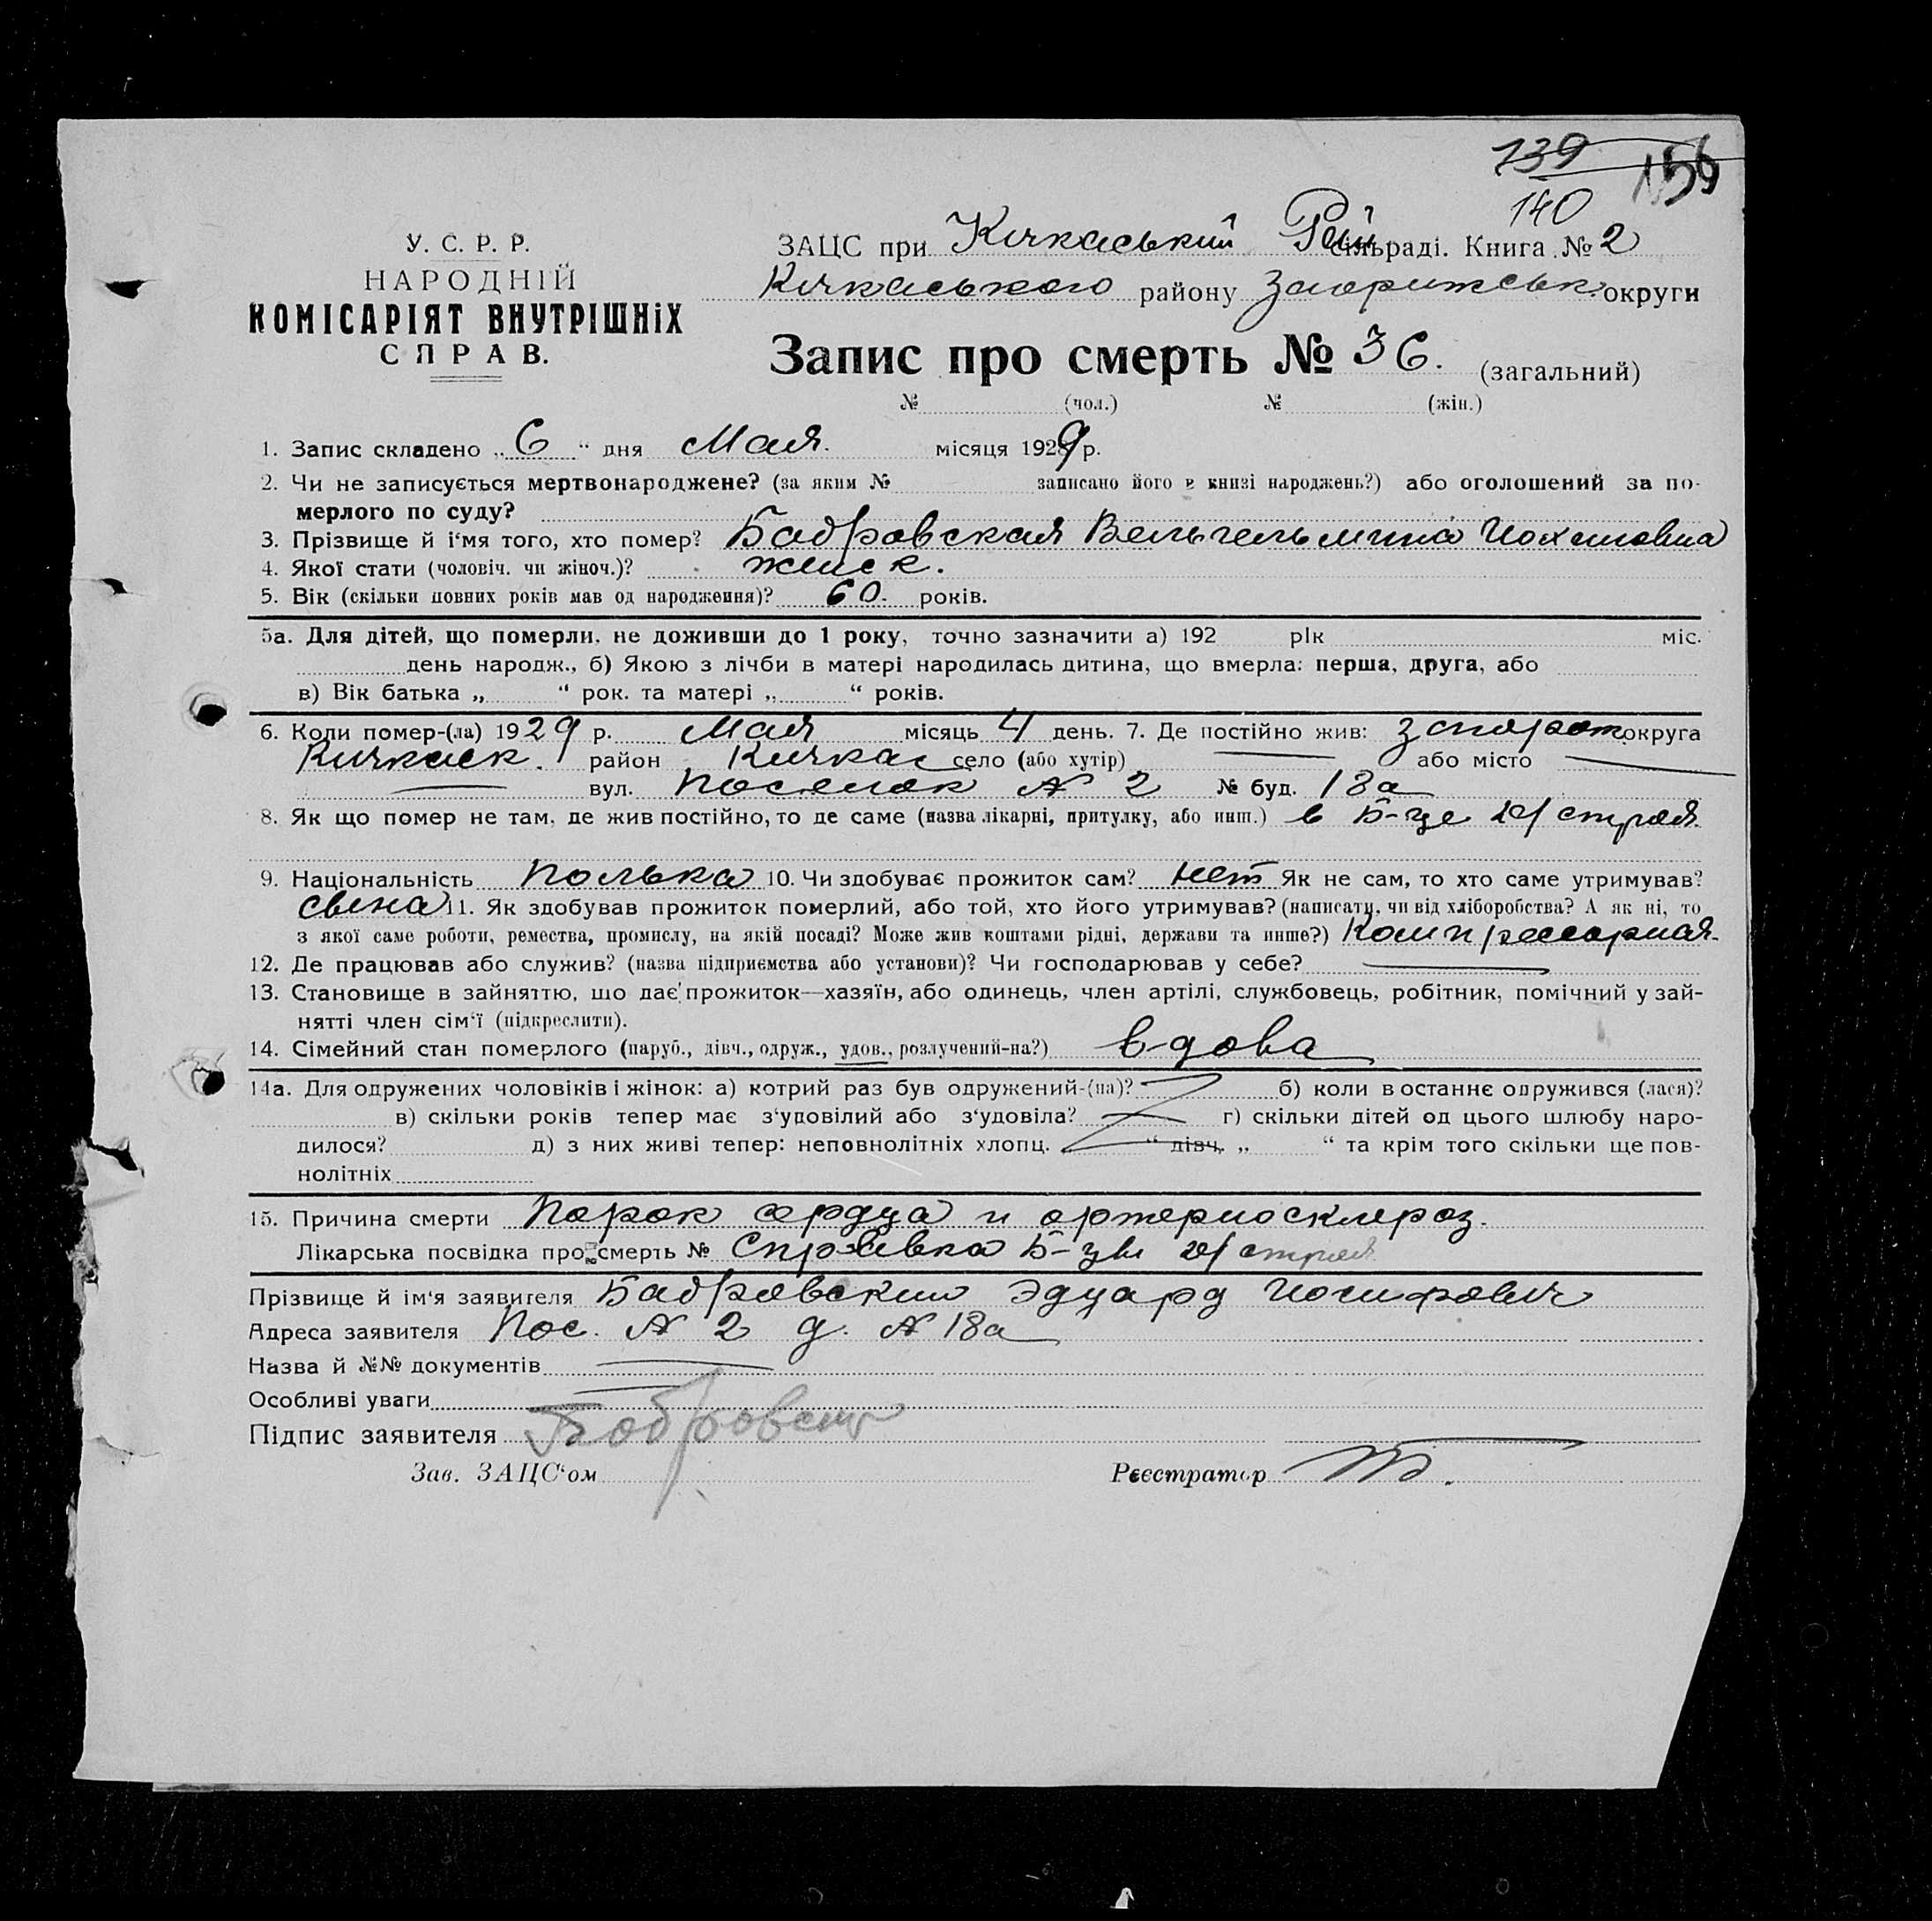 139 156
140
У. С. Р. Р.
НАРОДНІЙ
КОМІСАРІЯТ ВНУТРІШНІХ
СПРАВ.
ЗАЦС при Кичкаський Рай сільраді. Книга № 2
Кичкаського району Запорижськ. округи
Запис про смерть № 36. (загальний)
№ (чол.) № (жін.)
1. Запис складено „ 6 “ дня Мая. місяця 1929 р.
2. Чи не записується мертвонароджене? (за яким № записано його в книзі народжень?) або оголошений за по-
мерлого по суду?
3. Прізвище й і'мя того, хто помер? Бабровская Вельгельмина Иохановна
4. Якої стати (чоловіч. чи жіноч.)? женск.
5. Вік (скільки повних років мав од народження)? 60. років.
5а. Для дітей, що померли, не доживши до 1 року, точно зазначити а) 192 рік міс.
день народж., б) Якою з лічби в матері народилась дитина, що вмерла: перша, друга, або
в) Вік батька „ “ рок. та матері „ “ років.
6. Коли помер-(ла) 1929 р. Мая місяць 4 день. 7. Де постійно жив: Запорож. округа
Кичкаск. район Кичкас село (або хутір) — або місто —
— вул. Поселок № 2 № буд. 18а
8. Як що помер не там, де жив постійно, то де саме (назва лікарні, притулку, або инш.) в Б-це строя
9. Національність Полька 10. Чи здобуває прожиток сам? нет Як не сам, то хто саме утримував?
сына 11. Як здобував прожиток померлий, або той, хто його утримував? (написати, чи від хліборобства? А як ні, то
з якої саме роботи, ремества, промислу, на якій посаді? Може жив коштами рідні, держави та инше?) Компрессорная.
12. Де працював або служив? (назва підприємства або установи)? Чи господарював у себе? —
13. Становище в зайняттю, що дає прожиток—хазяїн, або одинець, член артілі, службовець, робітник, помічний у зай-
нятті член сім'ї (підкреслити).
14. Сімейний стан померлого (паруб., дівч., одруж., удов., розлучений-на?) вдова
14а. Для одружених чоловіків і жінок: а) котрий раз був одружений-(на)? б) коли востаннє одружився (лася)?
в) скільки років тепер має з'удовілий або з'удовіла? г) скільки дітей од цього шлюбу наро-
дилося? д) з них живі тепер: неповнолітніх хлопц. “ дівч. „ “ та крім того скільки ще пов-
нолітніх
15. Причина смерти Порок сердца и артериосклероз.
Лікарська посвідка про смерть № Справка Б-цы строя
Прізвище й ім'я заявителя Бабровский Эдуард Иосифович
Адреса заявителя Пос. № 2 д. № 18а
Назва й №№ документів —
Особливі уваги —
Підпис заявителя Бобровский
Зав. ЗАЦС'ом Реєстратор